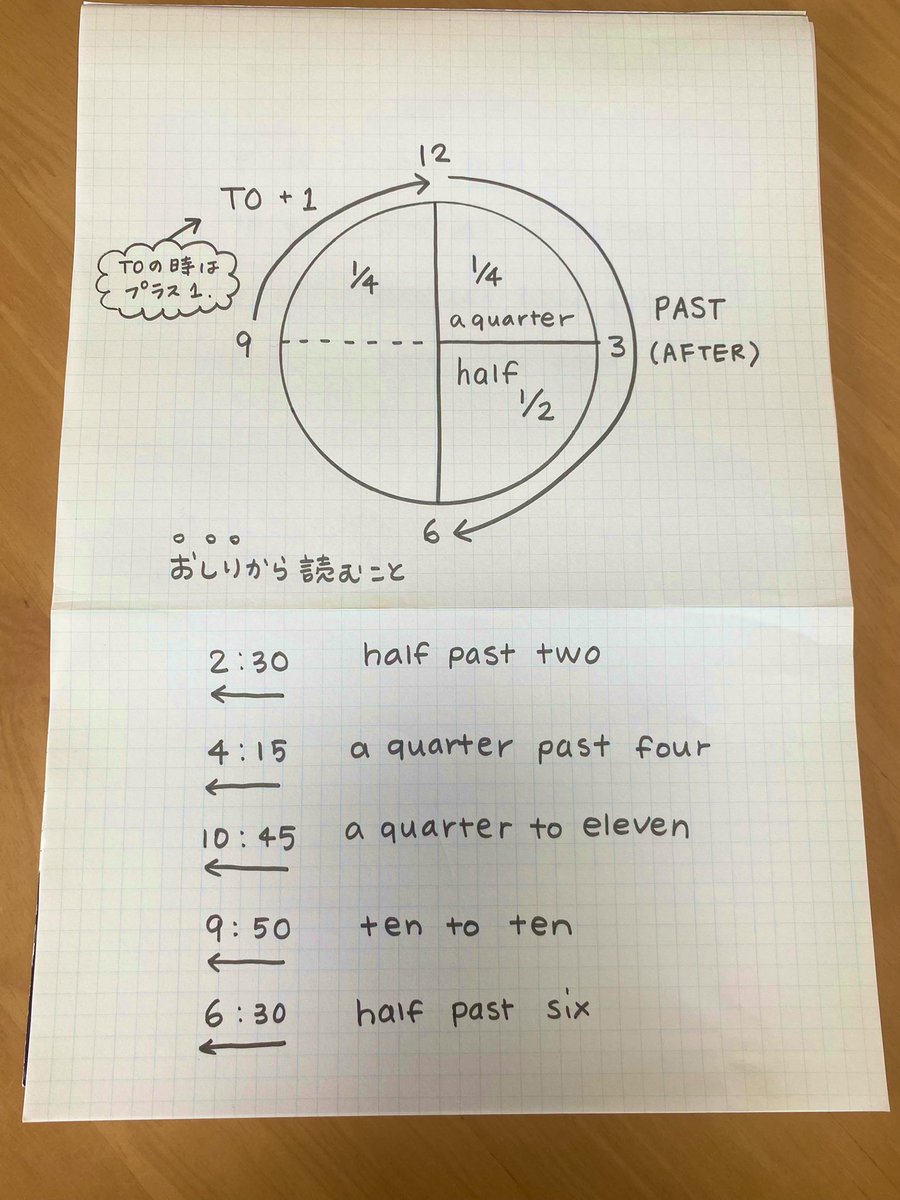 12
TO + 1
TOの時は
プラス1.
1/4
1/4
a quarter
9
3
PAST
(AFTER)
half
1/2
6
おしりから読むこと
2:30 half past two
4:15 a quarter past four
10:45 a quarter to eleven
9:50 ten to ten
6:30 half past six